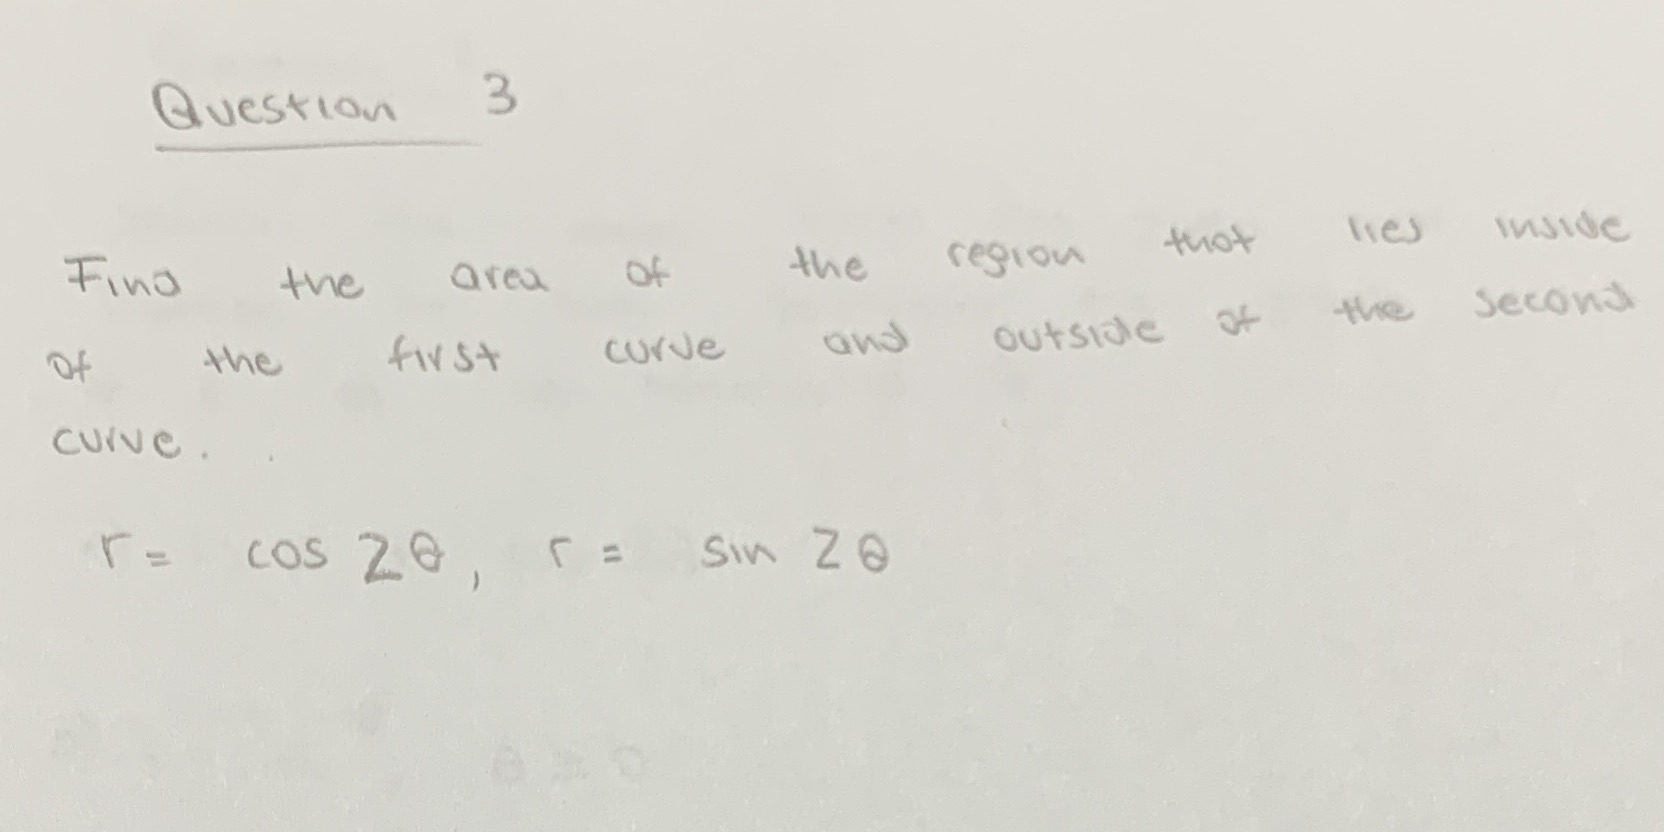 Question 3
Find the area of the region that lies inside
of the first curve and outside of the second
curve.
r = cos 2θ, r = sin 2θ